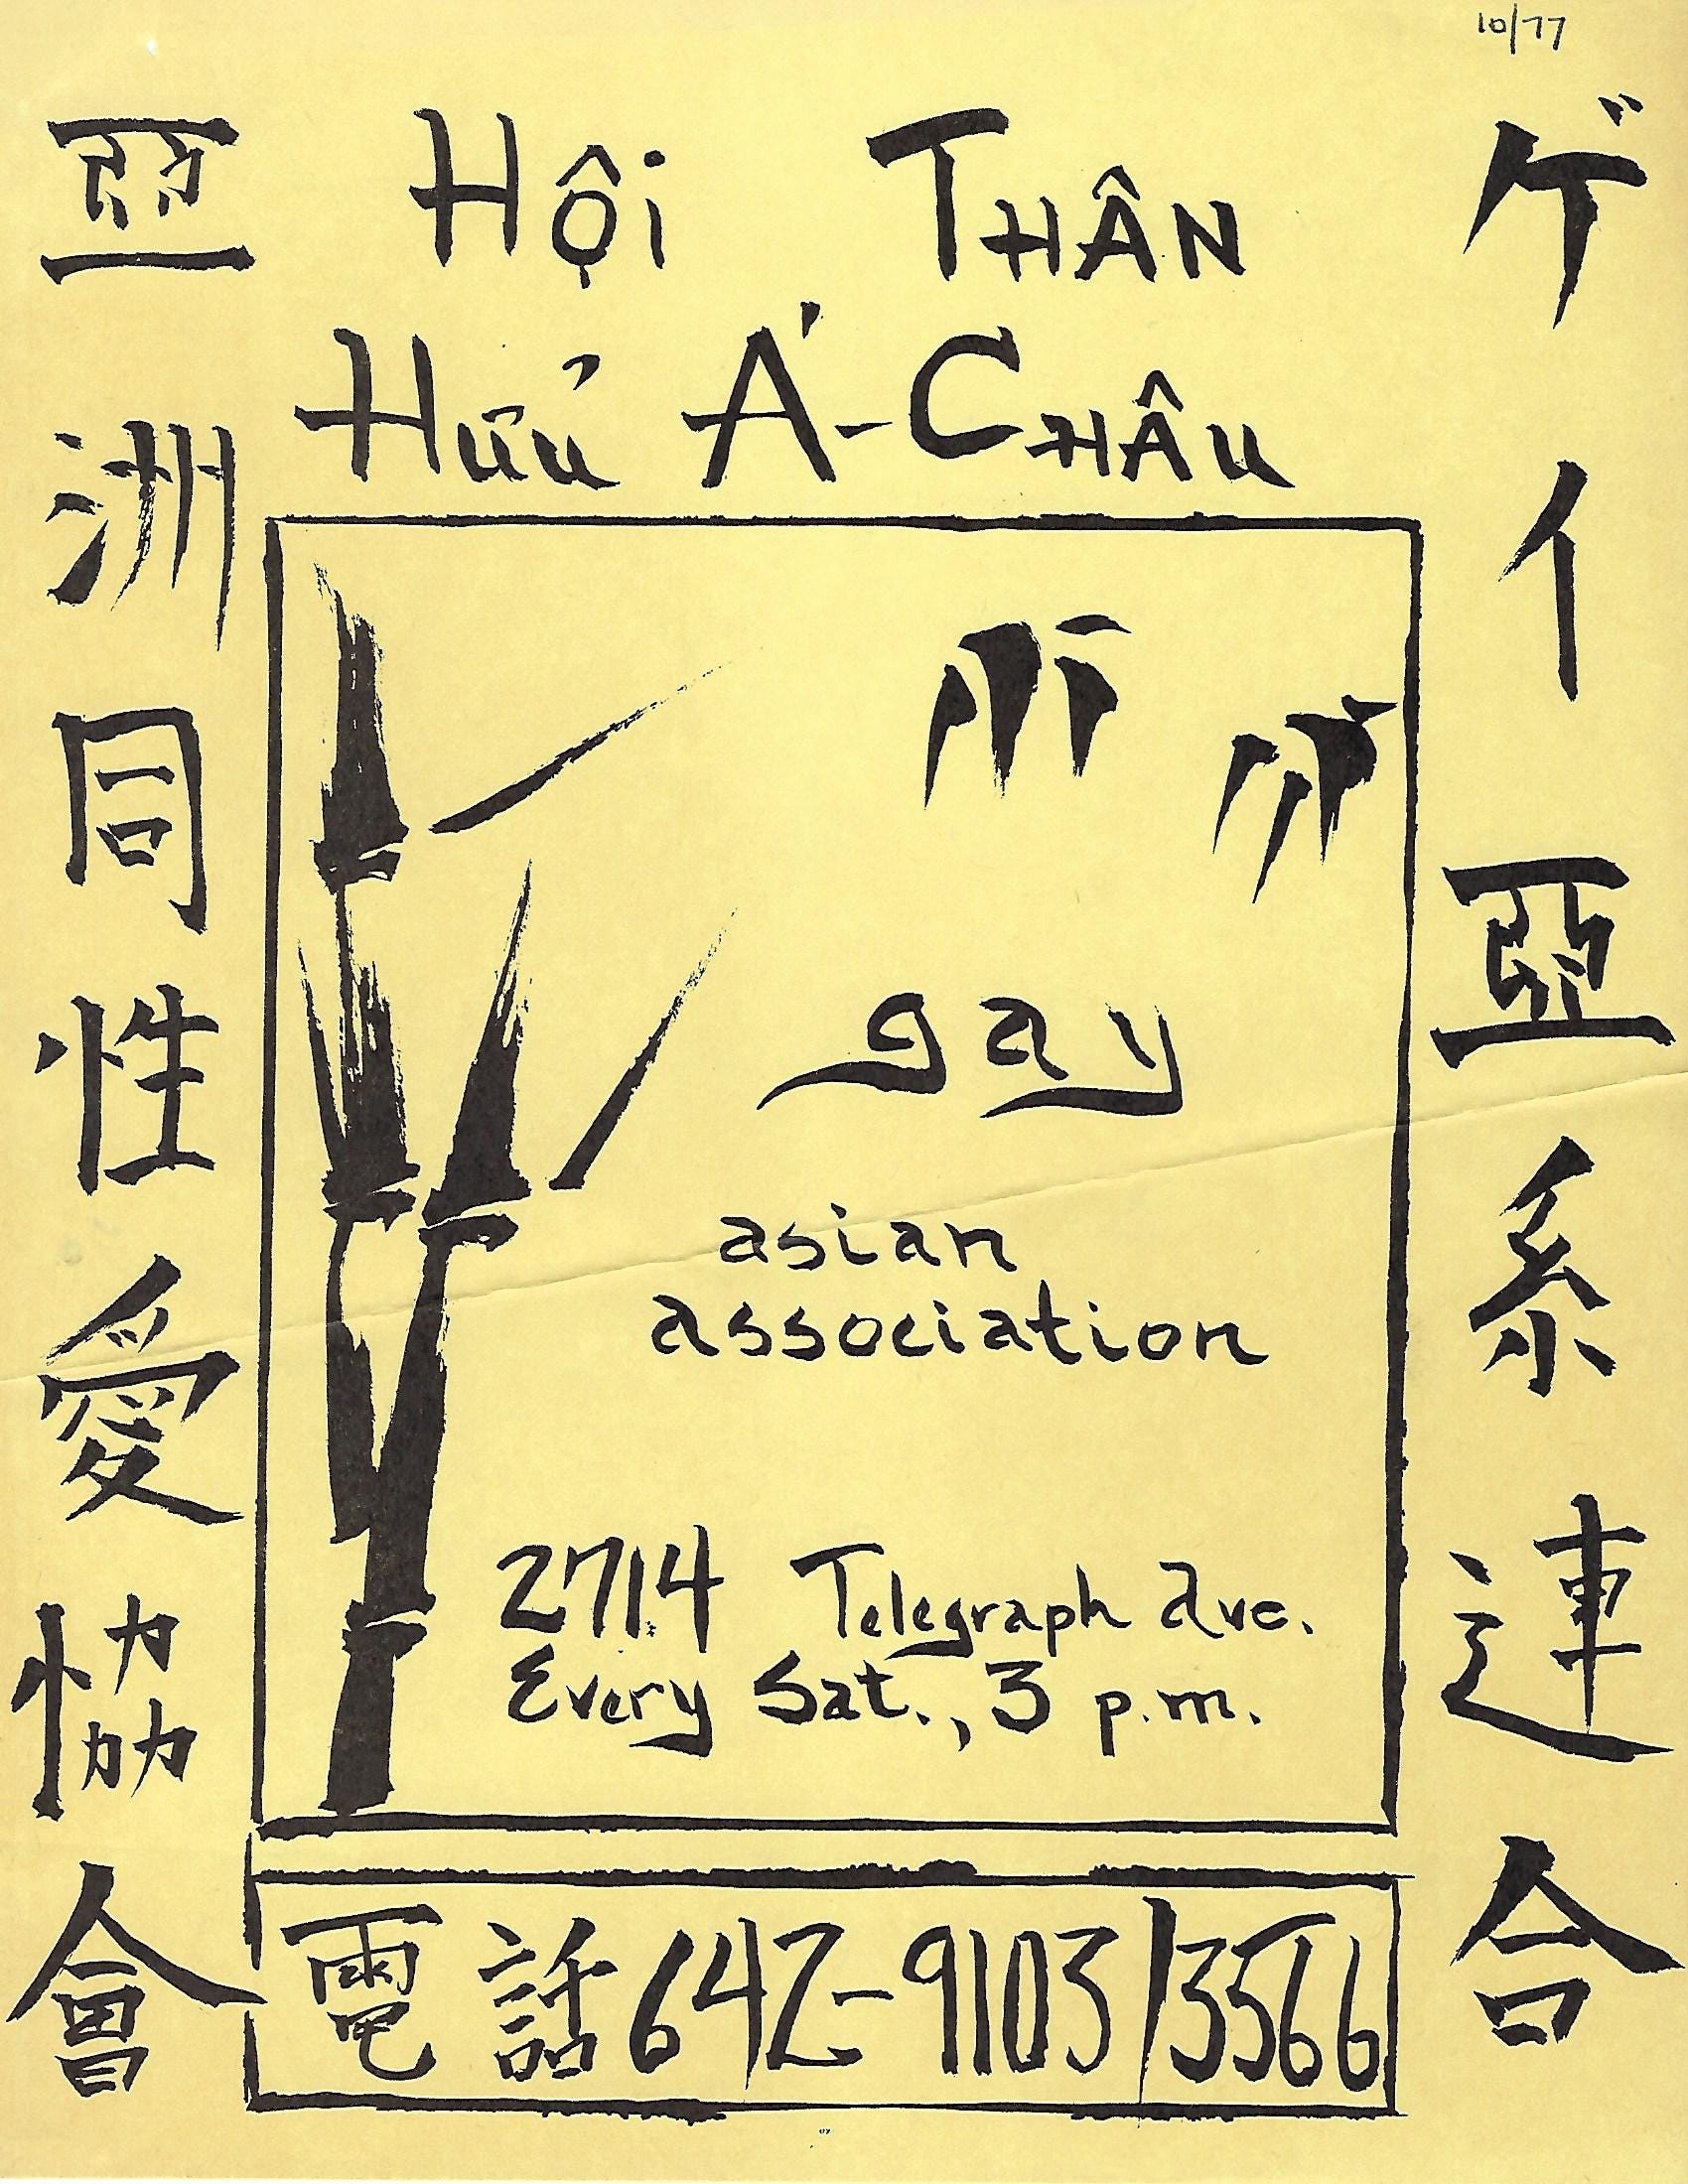 10/77
Hội Thân
Hữủ Á-Châu
亞洲同性愛協會
ゲイ亞系連合
gay
asian
association
2714 Telegraph Ave.
Every Sat., 3 p.m.
電話642-9103/3566